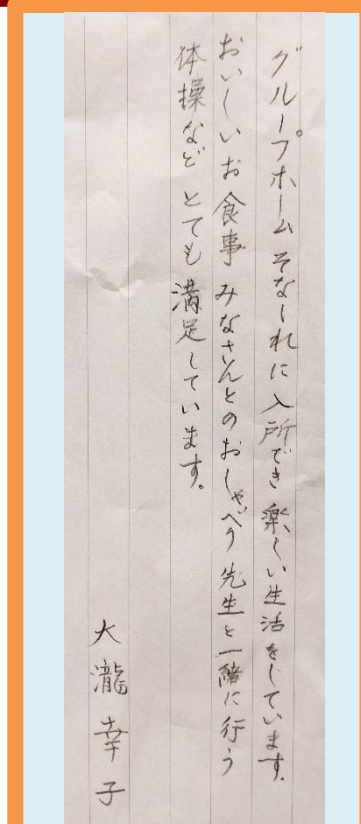 グループホーム そなーれに入所でき 楽しい生活をしています。
おいしいお食事 みなさんとのおしゃべり 先生と一緒に行う
体操など とても 満足しています。
大瀧 幸子